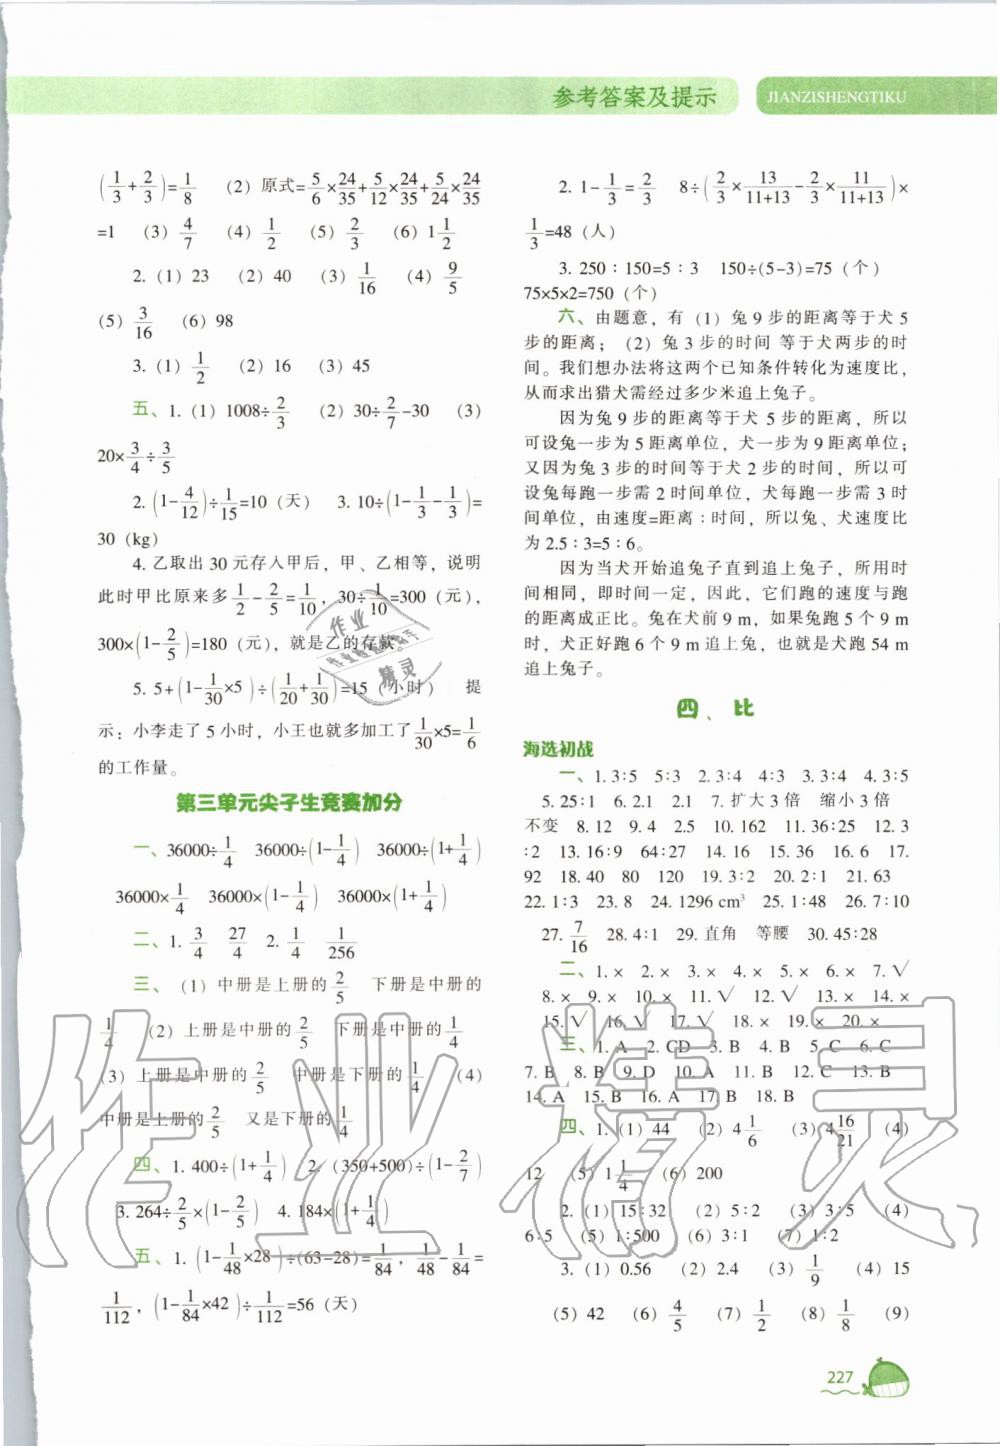 参考答案及提示
JIANZISHENGTIKU
(1/3+2/3)=1/8 (2) 原式=5/6×24/35+5/12×24/35+5/24×24/35
=1 (3) 4/7 (4) 1/2 (5) 2/3 (6) 1 1/2
2. (1) 23 (2) 40 (3) 1/16 (4) 9/5
(5) 3/16 (6) 98
3. (1) 1/2 (2) 16 (3) 45
五、1. (1) 1008÷2/3 (2) 30÷2/7-30 (3)
20×3/4÷3/5
2. (1-4/12)÷1/15=10 (天) 3. 10÷(1-1/3-1/3)=
30 (kg)
4. 乙取出 30 元存入甲后，甲、乙相等，说明
此时甲比原来多1/2-2/5=1/10，30÷1/10=300 (元)，
300×(1-2/5)=180 (元)，就是乙的存款。
5. 5+(1-1/30×5)÷(1/20+1/30)=15 (小时) 提
示：小李走了 5 小时，小王也就多加工了1/30×5=1/6
的工作量。
第三单元尖子生竞赛加分
一、36000÷1/4 36000÷(1-1/4) 36000÷(1+1/4)
36000×1/4 36000×(1-1/4) 36000×(1+1/4)
二、1. 3/4 27/4 2. 1/4 1/256
三、(1) 中册是上册的2/5 下册是中册的
1/4 (2) 上册是中册的2/5 下册是中册的1/4
(3) 上册是中册的2/5 中册是下册的1/4 (4)
中册是上册的2/5 又是下册的1/4
四、1. 400÷(1+1/4) 2. (350+500)÷(1-2/7)
3. 264÷2/5×(1-2/5) 4. 184×(1+1/4)
五、1. (1-1/48×28)÷(63-28)=1/84，1/48-1/84=
1/112，(1-1/84×42)÷1/112=56 (天)
2. 1-1/3=2/3 8÷(2/3×13/11+13-2/3×11/11+13)×
1/3=48 (人)
3. 250∶150=5∶3 150÷(5-3)=75 (个)
75×5×2=750 (个)
六、由题意，有 (1) 兔 9 步的距离等于犬 5
步的距离；(2) 兔 3 步的时间 等于犬两步的时
间。我们想办法将这两个已知条件转化为速度比，
从而求出猎犬需经过多少米追上兔子。
因为兔 9 步的距离等于犬 5 步的距离，所以
可设兔一步为 5 距离单位，犬一步为 9 距离单位；
又因为兔 3 步的时间等于犬 2 步的时间，所以可
设兔每跑一步需 2 时间单位，犬每跑一步需 3 时
间单位，由速度=距离∶时间，所以兔、犬速度比
为 2.5∶3=5∶6。
因为当犬开始追兔子直到追上兔子，所用时
间相同，即时间一定，因此，它们跑的速度与跑
的距离成正比。兔在犬前 9 m，如果兔跑 5 个 9 m
时，犬正好跑 6 个 9 m 追上兔，也就是犬跑 54 m
追上兔子。
四、比
海选初战
一、1. 3∶5 5∶3 2. 3∶4 4∶3 3. 3∶4 4. 3∶5
5. 25∶1 6. 2.1 2.1 7. 扩大 3 倍 缩小 3 倍
不变 8. 12 9. 4 2.5 10. 162 11. 36∶25 12. 3
∶2 13. 16∶9 64∶27 14. 16 15. 36 16. 6 17.
92 18. 40 80 120 19. 3∶2 20. 2∶1 21. 63
22. 1∶3 23. 8 24. 1296 cm³ 25. 1∶48 26. 7∶10
27. 7/16 28. 4∶1 29. 直角 等腰 30. 45∶28
二、1. × 2. × 3. × 4. × 5. × 6. × 7. √
8. × 9. × 10. × 11. √ 12. √ 13. × 14. ×
15. √ 16. √ 17. √ 18. × 19. × 20. ×
三、1. A 2. CD 3. B 4. B 5. C 6. C
7. B 8. B 9. D 10. A 11. B 12. C 13. B
14. A 15. B 16. A 17. B 18. B
四、1. (1) 44 (2) 4 1/6 (3) 4 16/21 (4)
12 (5) 1 1/4 (6) 200
2. (1) 15∶32 (2) 5∶2 (3) 3∶5 (4)
6∶5 (5) 1∶500 (6) 3∶1 (7) 1∶2
3. (1) 0.56 (2) 2.4 (3) 1/9 (4) 15
(5) 42 (6) 4/5 (7) 1/2 (8) 1/8 (9)
227
作业精灵